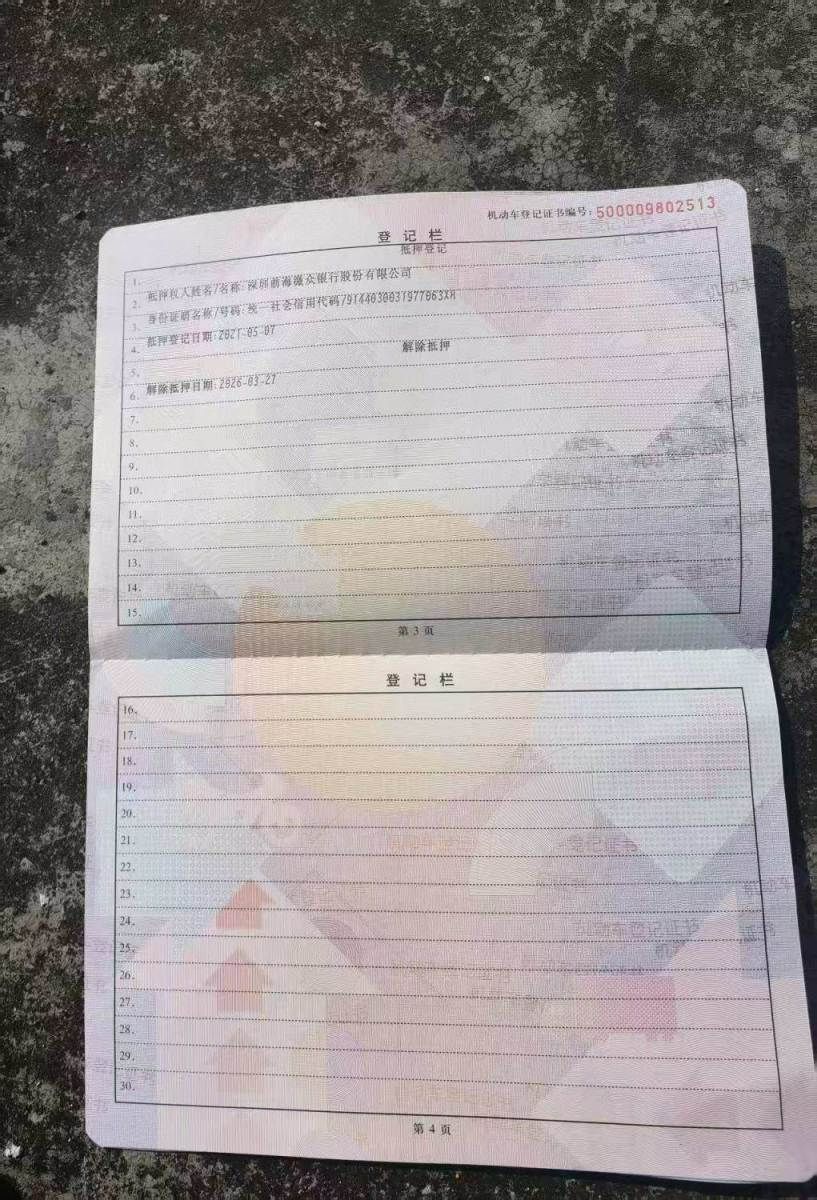 机动车登记证书编号：500009802513
登记栏
抵押登记
1.
2. 抵押权人姓名/名称:深圳前海微众银行股份有限公司
3. 身份证明名称/号码:统一社会信用代码/9144030031977063XH
4. 抵押登记日期:2021-05-07
5. 解除抵押
6. 解除抵押日期:2026-03-27
7.
8.
9.
10.
11.
12.
13.
14.
15.
第 3 页
登记栏
16.
17.
18.
19.
20.
21.
22.
23.
24.
25.
26.
27.
28.
29.
30.
第 4 页